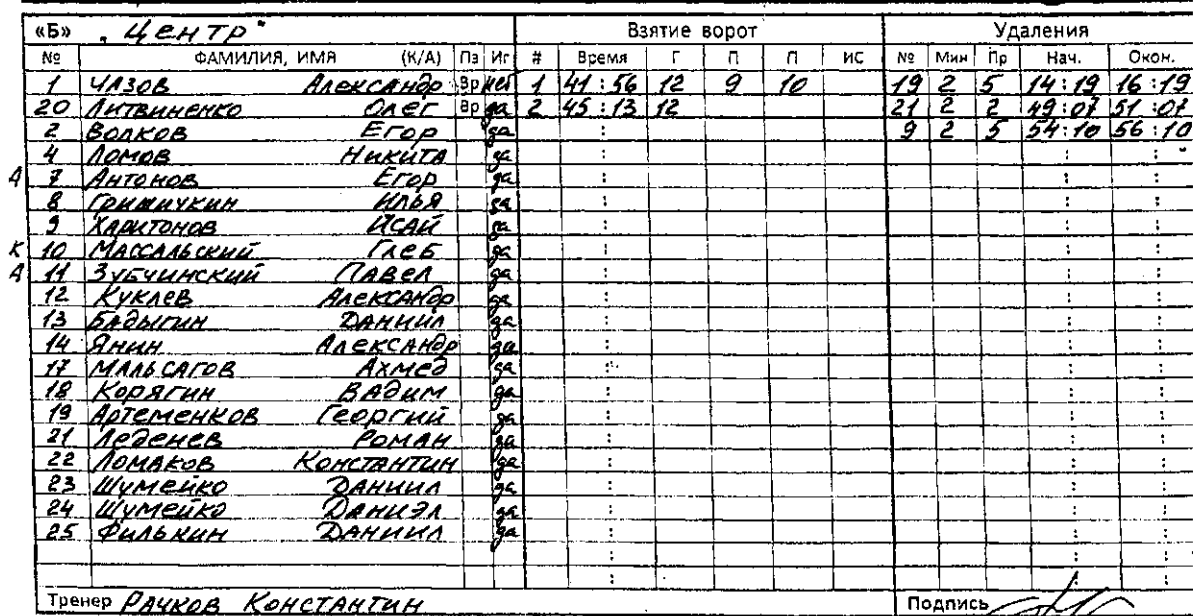 «Б» „Центр" Взятие ворот Удаления
№ ФАМИЛИЯ, ИМЯ (К/А) Пз Иг # Время Г П П ИС № Мин Пр Нач. Окон.
1 Чазов Александр Вр нет 1 41:56 12 9 10 19 2 5 14:19 16:19
20 Литвиненко Олег Вр да 2 45:13 12 21 2 2 49:07 51:07
2 Волков Егор да 9 2 5 54:10 56:10
4 Ломов Никита да
А 7 Антонов Егор да
8 Гришичкин Илья да
9 Харитонов Исай да
К 10 Массальский Глеб да
А 11 Зубчинский Павел да
12 Куклев Александр да
13 Бадыгин Даниил да
14 Янин Александр да
17 Мальсагов Ахмед да
18 Корягин Вадим да
19 Артеменков Георгий да
21 Леденев Роман да
22 Ломаков Константин да
23 Шумейко Даниил да
24 Шумейко Даниэл да
25 Филькин Даниил да
Тренер Рачков Константин Подпись